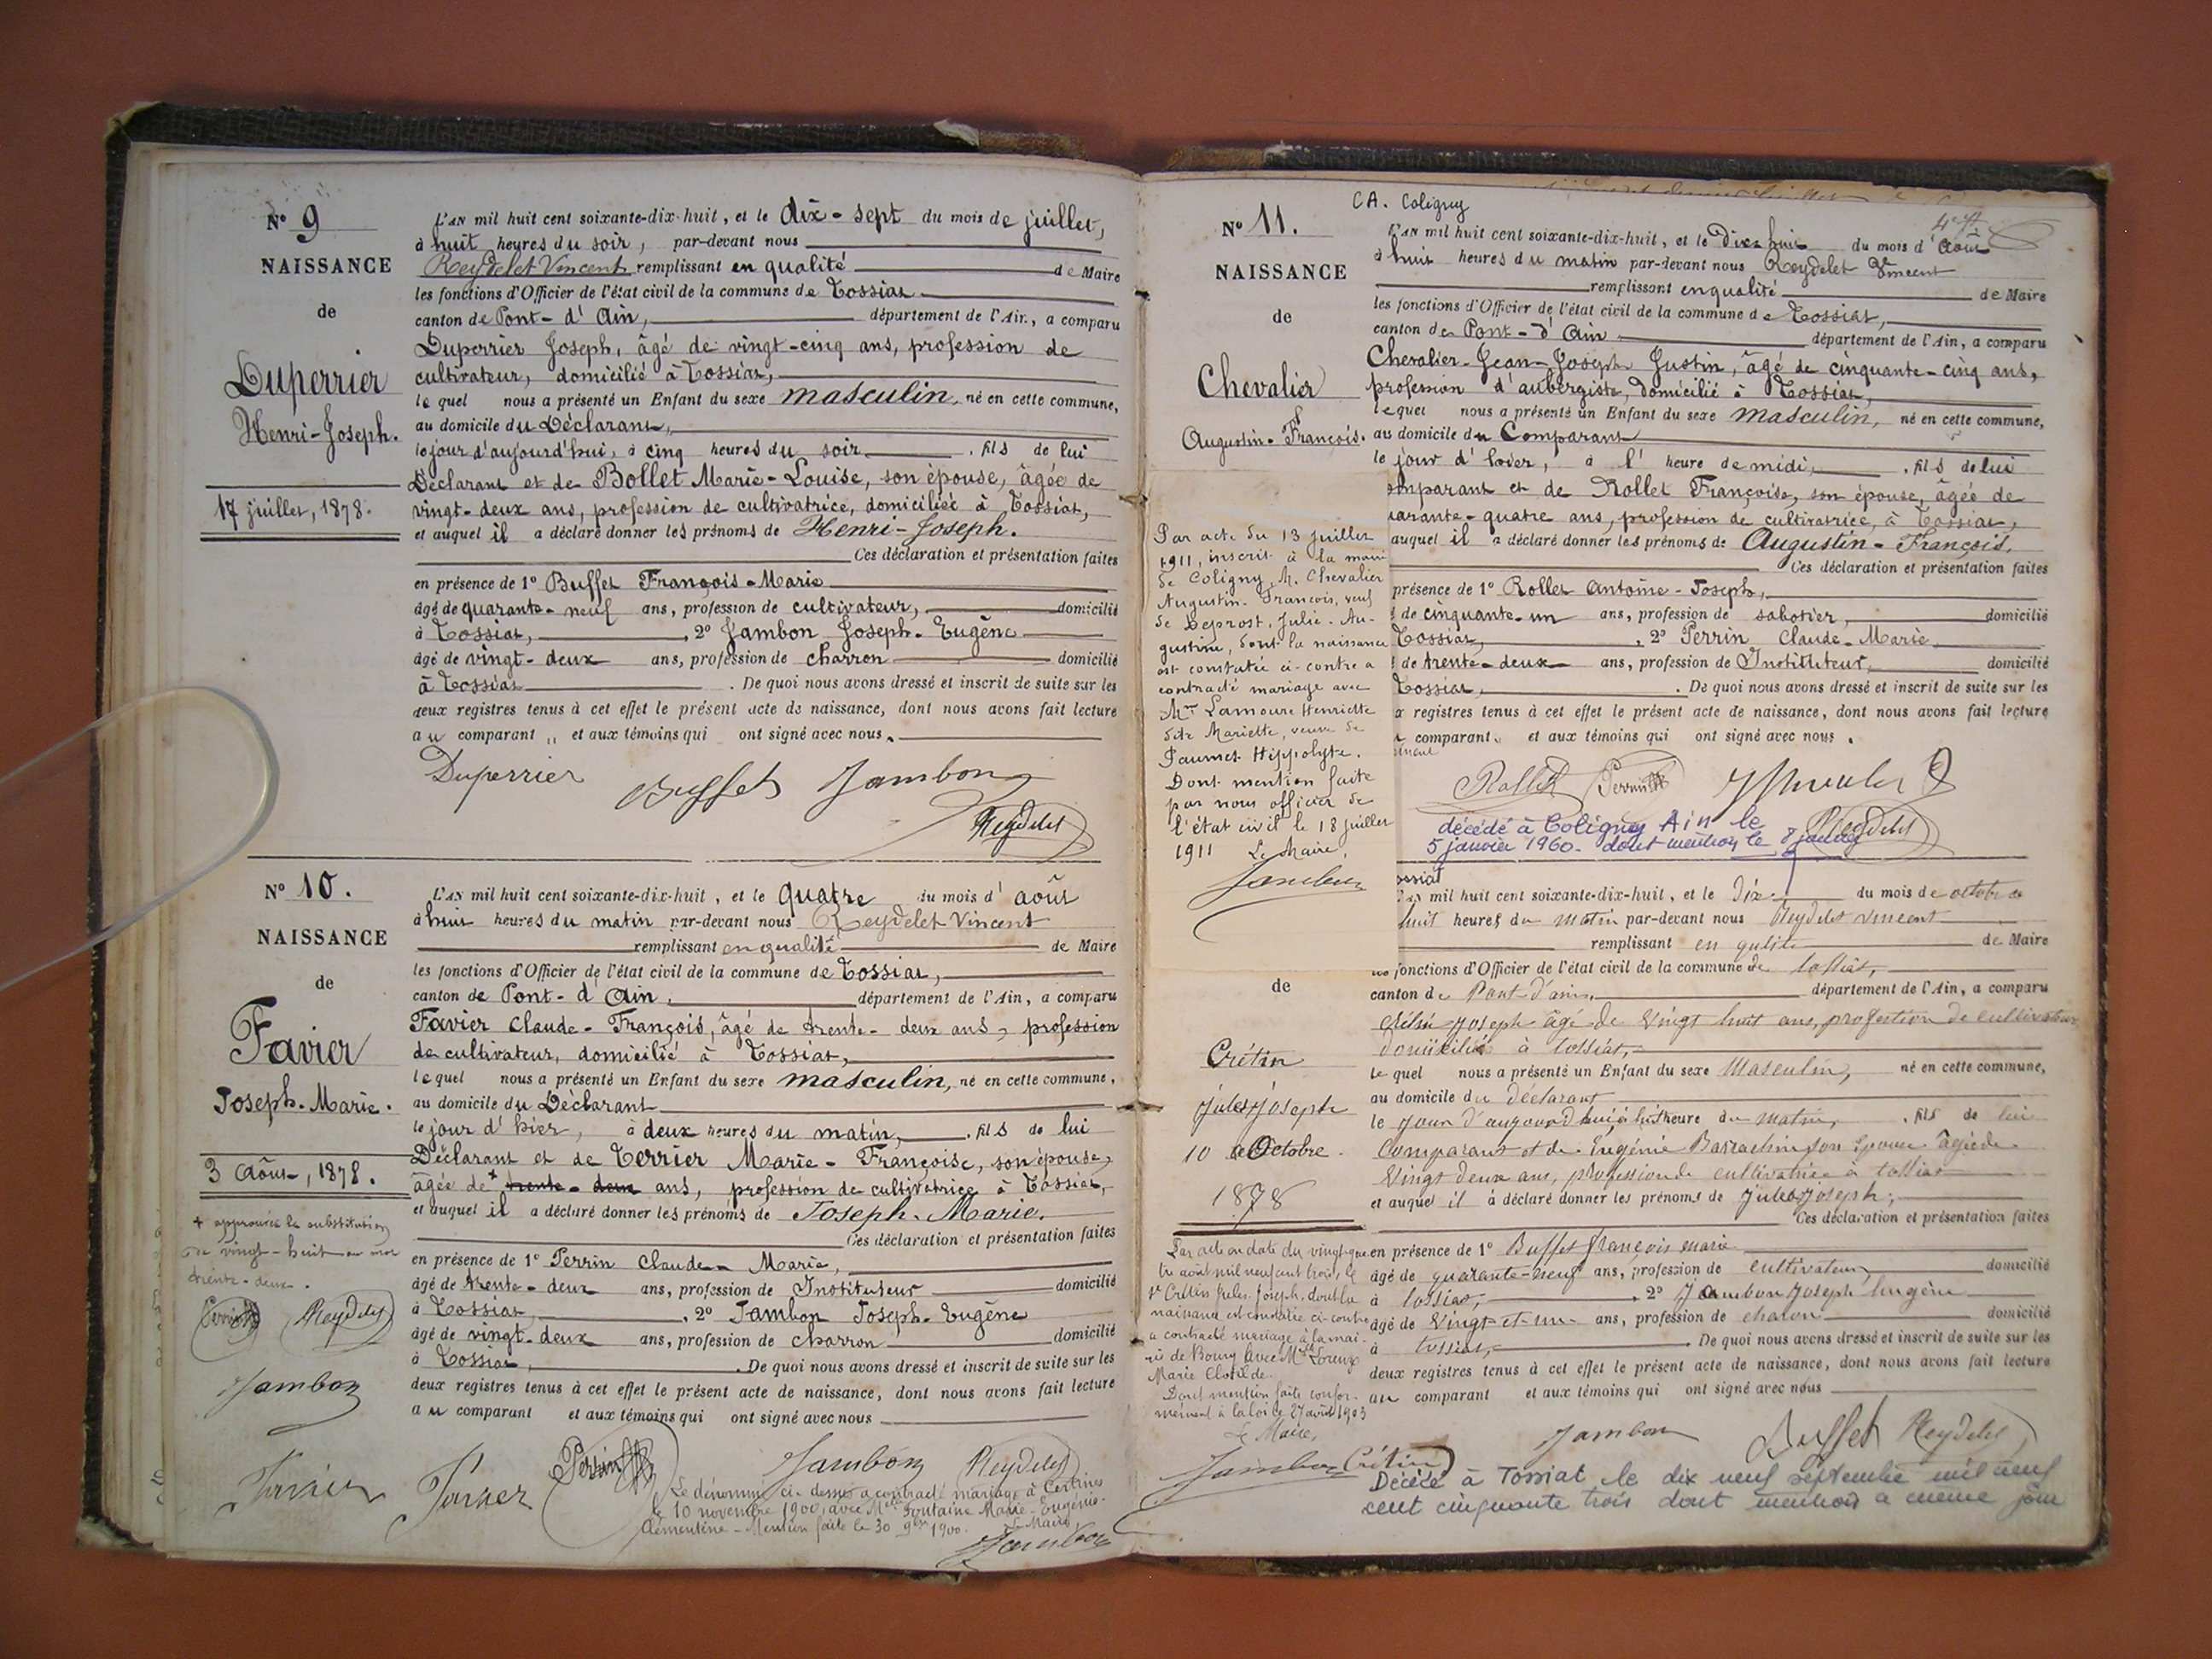 N° 9
NAISSANCE
de
Duperrier
Henri-Joseph.
17 juillet, 1878.
L'AN mil huit cent soixante-dix-huit, et le dix-sept du mois de juillet,
à huit heures du soir, par-devant nous
Reydelet Vincent remplissant en qualité de Maire
les fonctions d'Officier de l'état civil de la commune de Tossiat
canton de Pont-d'Ain, département de l'Ain, a comparu
Duperrier Joseph, âgé de vingt-cinq ans, profession de
cultivateur, domicilié à Tossiat,
lequel nous a présenté un Enfant du sexe masculin, né en cette commune,
au domicile du Déclarant,
le jour d'aujourd'hui, à cinq heures du soir, fils de lui
Déclarant et de Bollet Marie-Louise, son épouse, âgée de
vingt-deux ans, profession de cultivatrice, domiciliée à Tossiat,
et auquel il a déclaré donner les prénoms de Henri-Joseph.
Ces déclaration et présentation faites
en présence de 1° Buffet François-Marie
âgé de quarante-neuf ans, profession de cultivateur, domicilié
à Tossiat, 2° Jambon Joseph-Eugène
âgé de vingt-deux ans, profession de charron domicilié
à Tossiat. De quoi nous avons dressé et inscrit de suite sur les
deux registres tenus à cet effet le présent acte de naissance, dont nous avons fait lecture
au comparant " et aux témoins qui ont signé avec nous.
Duperrier Buffet Jambon
Reydelet
N° 10.
NAISSANCE
de
Favier
Joseph-Marie.
3 Août, 1878.
+ approuvée la substitution
de vingt-huit au mot
trente-deux.
Perrin Reydelet
Jambon
Favier
L'AN mil huit cent soixante-dix-huit, et le quatre du mois d'août
à huit heures du matin par-devant nous Reydelet Vincent
remplissant en qualité de Maire
les fonctions d'Officier de l'état civil de la commune de Tossiat,
canton de Pont-d'Ain, département de l'Ain, a comparu
Favier Claude-François, âgé de trente-deux ans, profession
de cultivateur, domicilié à Tossiat,
lequel nous a présenté un Enfant du sexe masculin, né en cette commune,
au domicile du Déclarant
le jour d'hier, à deux heures du matin, fils de lui
Déclarant et de Terrier Marie-Françoise, son épouse,
âgée de + trente-deux ans, profession de cultivatrice à Tossiat,
et auquel il a déclaré donner les prénoms de Joseph-Marie.
Ces déclaration et présentation faites
en présence de 1° Perrin Claude-Marie,
âgé de trente-deux ans, profession de Instituteur domicilié
à Tossiat, 2° Jambon Joseph-Eugène
âgé de vingt-deux ans, profession de charron domicilié
à Tossiat, De quoi nous avons dressé et inscrit de suite sur les
deux registres tenus à cet effet le présent acte de naissance, dont nous avons fait lecture
au comparant et aux témoins qui ont signé avec nous
Favier Perrin Jambon Reydelet
Le dénommé ci-dessus a contracté mariage à Certines
le 10 novembre 1900, avec Melle Fontaine Marie-Eugénie-
Clémentine - Mention faite le 30 9bre 1900. Le Maire,
Jambon
CA. Coligny
N° 11.
NAISSANCE
de
Chevalier
Augustin-François.
Par acte du 13 juillet
1911, inscrit à la mairie
de Coligny, M. Chevalier
Augustin-François, veuf
de Deprost, Julie-Au-
gustine, dont la naissance
est constatée ci-contre a
contracté mariage avec
Mme Lamoure Henriette
dite Mariette, veuve de
Paumet Hippolyte.
Dont mention faite
par nous officier de
l'état civil le 18 juillet
1911 Le Maire,
Jambon
L'AN mil huit cent soixante-dix-huit, et le dix huit du mois d'août
à huit heures du matin par-devant nous Reydelet Vincent
remplissant en qualité de Maire
les fonctions d'Officier de l'état civil de la commune de Tossiat,
canton de Pont-d'Ain département de l'Ain, a comparu
Chevalier-Jean-Joseph Justin, âgé de cinquante-cinq ans,
profession d'aubergiste, domicilié à Tossiat,
lequel nous a présenté un Enfant du sexe masculin, né en cette commune,
au domicile du Comparant
le jour d'hier, à l'heure de midi, fils de lui
omparant et de Rollet Françoise, son épouse, âgée de
arante-quatre ans, profession de cultivatrice, à Tossiat,
auquel il a déclaré donner les prénoms de Augustin-François.
Ces déclaration et présentation faites
présence de 1° Rollet Antoine-Joseph,
de cinquante-un ans, profession de sabotier, domicilié
Tossiat, 2° Perrin Claude-Marie
de trente-deux ans, profession de Instituteur, domicilié
Tossiat, De quoi nous avons dressé et inscrit de suite sur les
x registres tenus à cet effet le présent acte de naissance, dont nous avons fait lecture
comparant et aux témoins qui ont signé avec nous.
Rollet Perrin Chevalier
Reydelet
décédé à Coligny Ain le
5 janvier 1960. dont mention le 8 janvier
ossiat
de
Crétin
Jules Joseph
10 Octobre
1878
Par acte en date du vingt-qua
tre août mil neuf cent trois, le
sr Crétin Jules Joseph, dont la
naissance est constatée ci-contre
a contracté mariage à la mai-
rie de Bourg avec Melle Loreux
Marie Clotilde.
Dont mention faite confor-
mément à la loi le 27 août 1903
Le Maire,
Jambon
L'AN mil huit cent soixante-dix-huit, et le Dix du mois de octobre
huit heures du matin par-devant nous Reydelet vincent
remplissant en qulité de Maire
fonctions d'Officier de l'état civil de la commune de tossiat,
canton de Pont d'ain, département de l'Ain, a comparu
Crétin Joseph âgé de vingt huit ans, profession de cultivateur
domicilié à tossiat,
lequel nous a présenté un Enfant du sexe Masculin, né en cette commune,
au domicile du déclarant
le jour d'aujourd'hui à heure du matin, fils de lui
Comparant et de Eugénie Barrachin son épouse âgée de
Vingt deux ans, profession de cultivatrice à tossiat
et auquel il à déclaré donner les prénoms de Jules Joseph,
Ces déclaration et présentation faites
en présence de 1° Buffet francois marie
âgé de quarante-neuf ans, profession de cultivateur, domicilié
à tossiat, 2° Jambon Joseph Eugène
âgé de Vingt-et-un ans, profession de charon domicilié
à tossiat, De quoi nous avons dressé et inscrit de suite sur les
deux registres tenus à cet effet le présent acte de naissance, dont nous avons fait lecture
au comparant et aux témoins qui ont signé avec nous
Crétin Jambon Buffet Reydelet
Décédé à Tossiat le dix neuf septembre mil neuf
cent cinquante trois dont mention a même jour